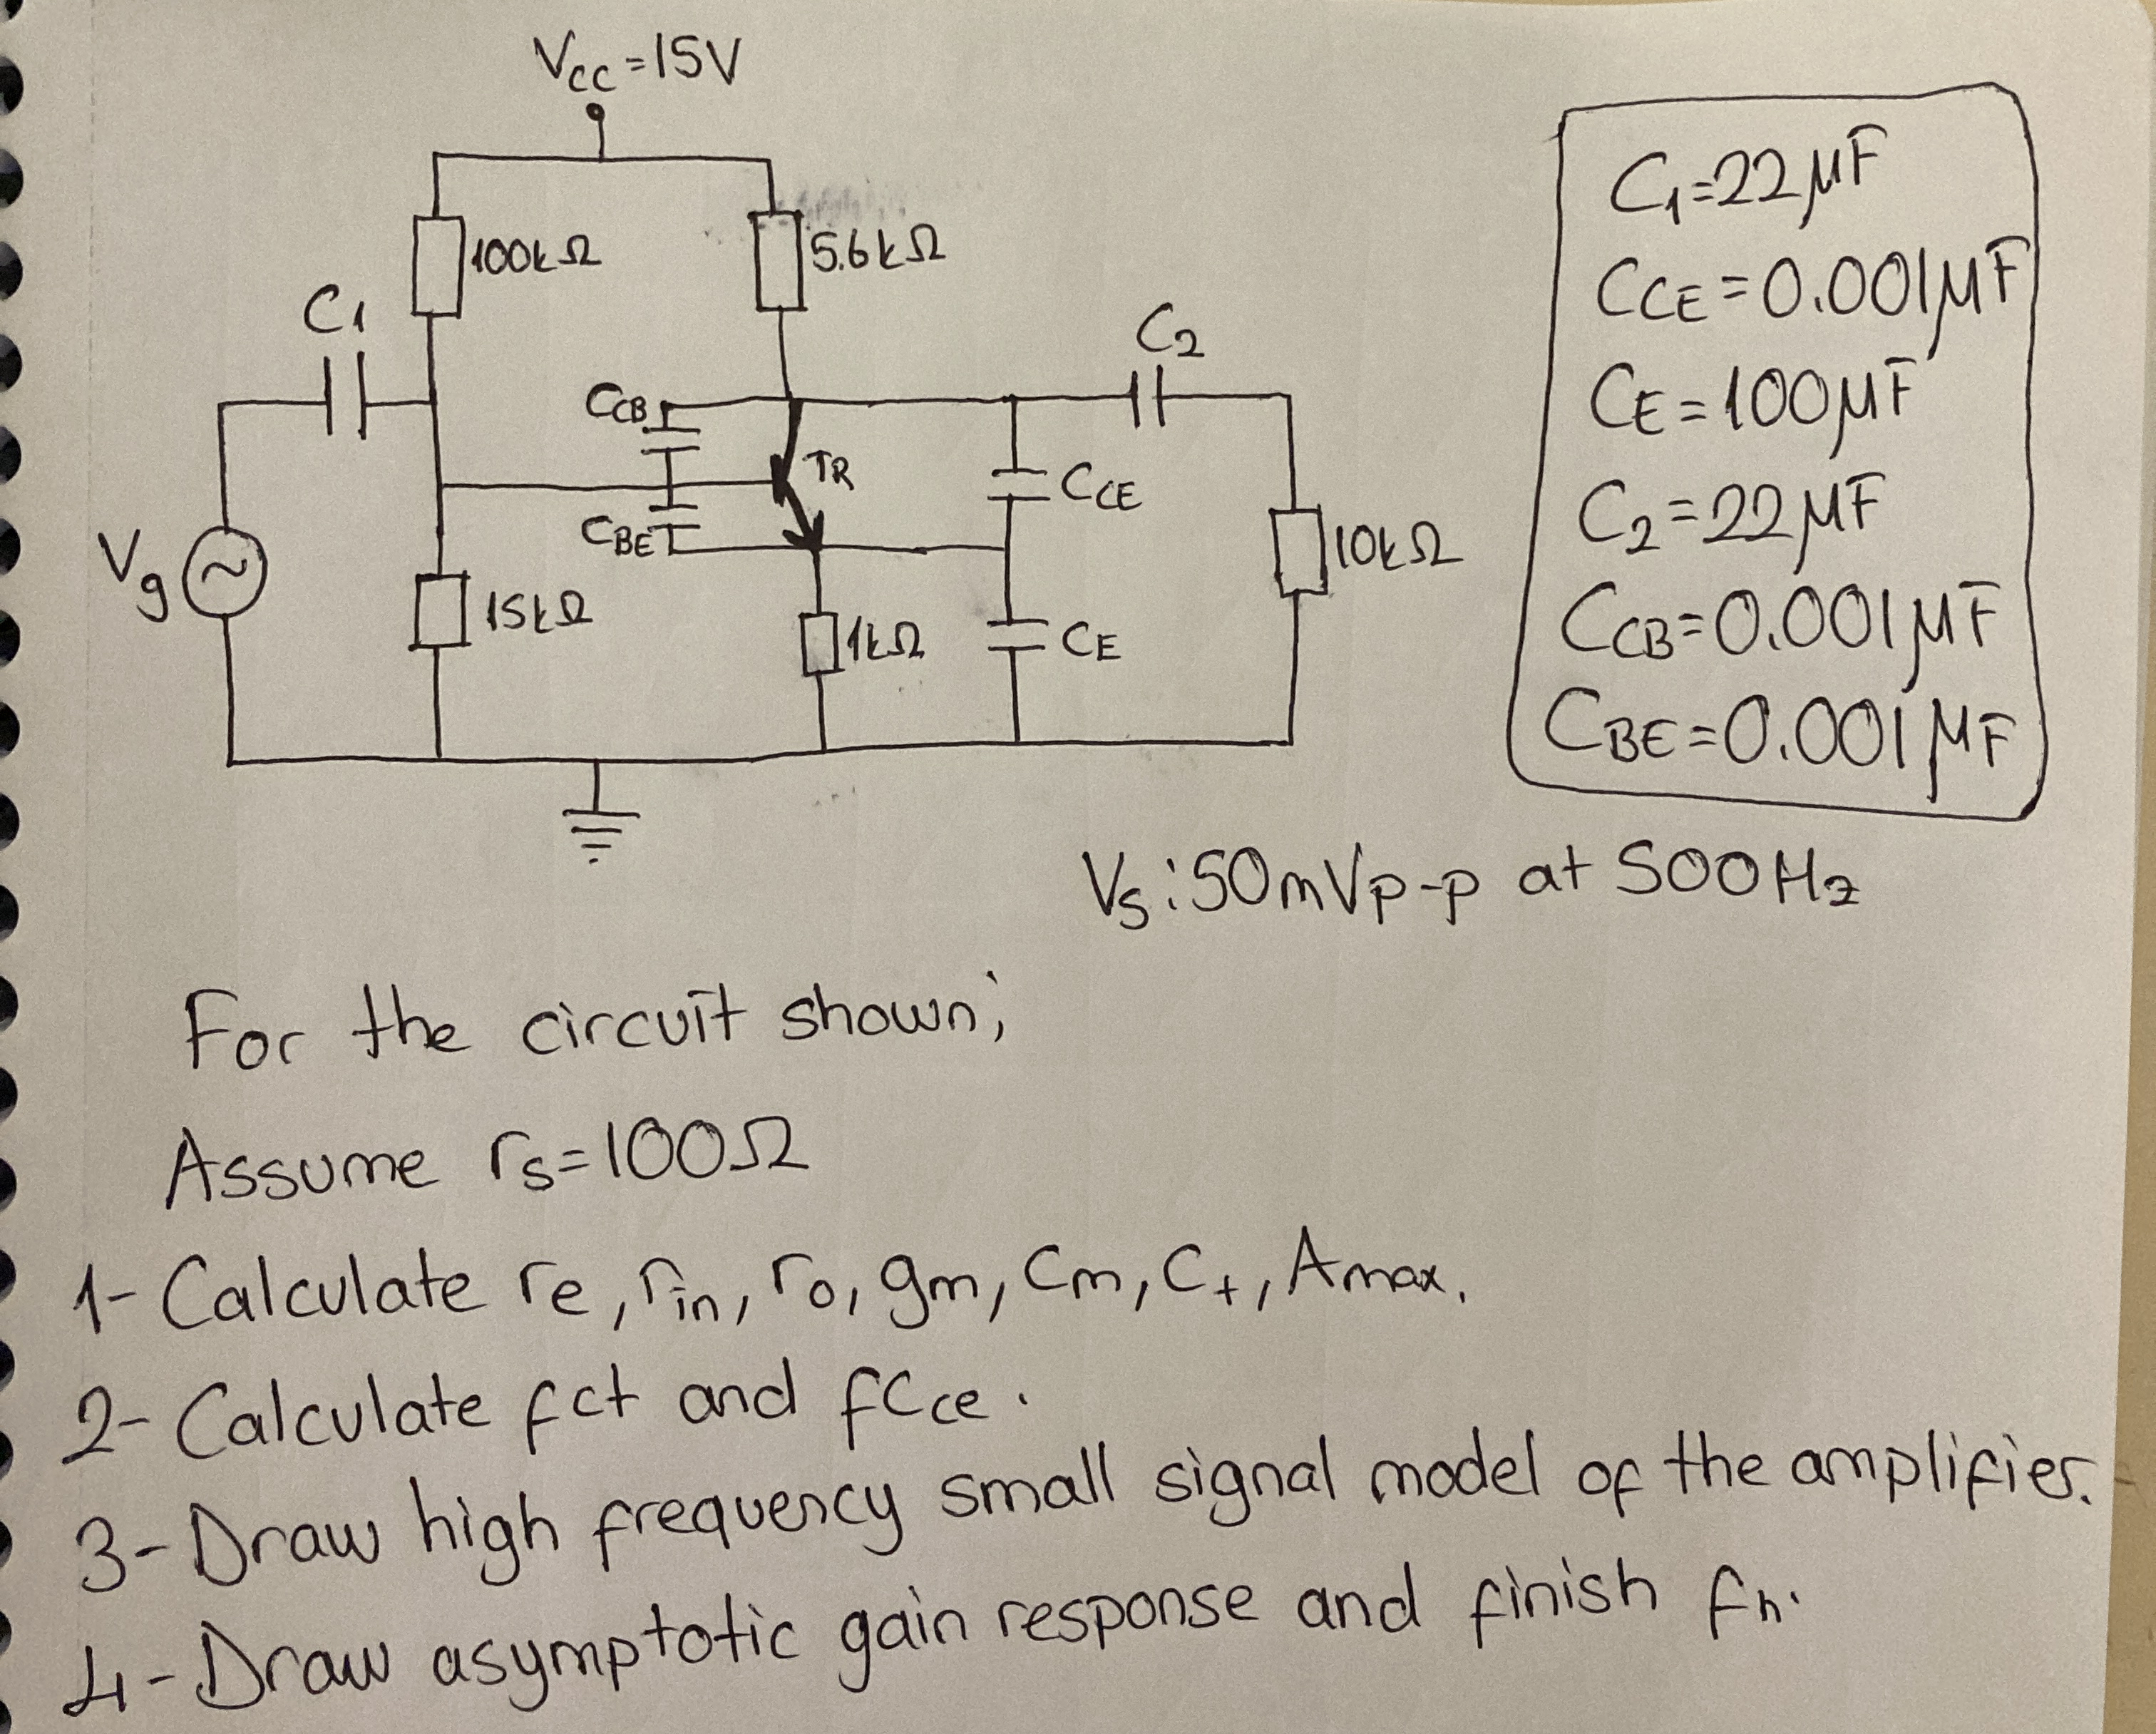 VCC=15V
100kΩ
5.6kΩ
C1
C2
CCB
TR
CCE
CBE
Vg
10kΩ
15kΩ
1kΩ
CE
C1=22μF
CCE=0.001μF
CE=100μF
C2=22μF
CCB=0.001μF
CBE=0.001μF
Vs:50mVp-p at 500Hz
For the circuit shown;
Assume rs=100Ω
1- Calculate re, rin, ro, gm, Cm, C+, Amax.
2- Calculate fct and fCce.
3- Draw high frequency small signal model of the amplifier.
4- Draw asymptotic gain response and finish fh.